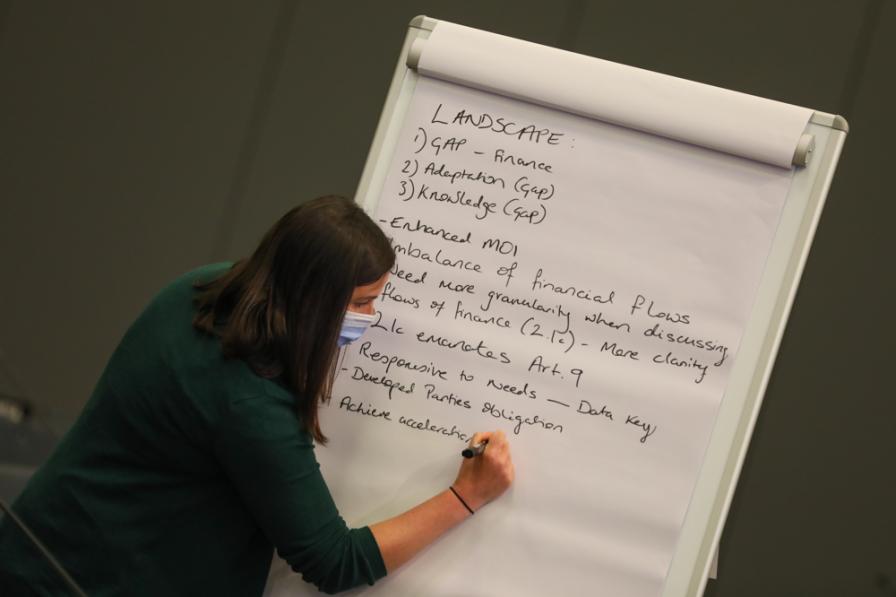 LANDSCAPE:
1) GAP - finance
2) Adaptation (Gap)
3) Knowledge (Gap)
- Enhanced MOI
Imbalance of financial flows
Need more granularity when discussing
flows of finance (2.1c) - More clarity
2.1c emanates Art. 9
Responsive to needs — Data key
- Developed Parties obligation
Achieve acceleratio